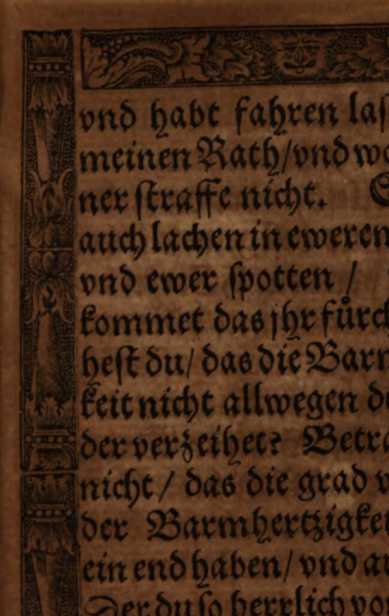 vnd habt fahren laſ
meinen Rath/vnd wo
ner ſtraffe nicht.
auch lachen in eweren
vnd ewer ſpotten /
kommet das jhr fürch
heſt du/ das die Barm
keit nicht allwegen de
der verzeihet? Betra
nicht / das die grad v
der Barmhertzigkei
ein end haben/ vnd au
Der du ſo herrlich vo